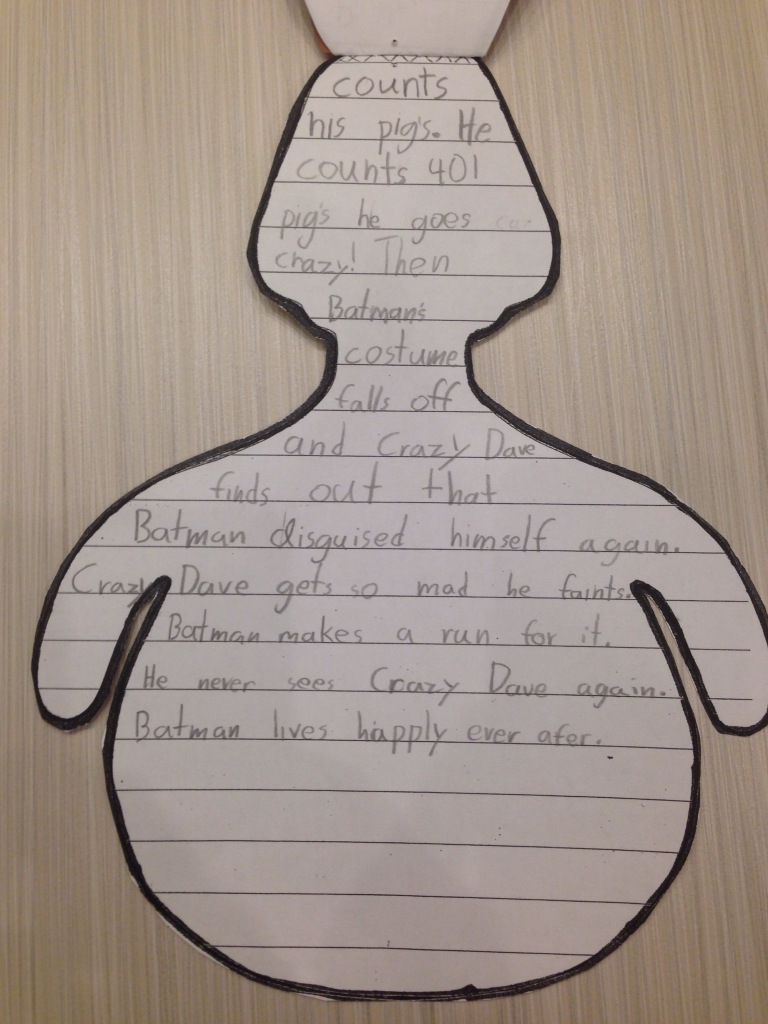 counts
his pig's. He
counts 401
pig's he goes
crazy! Then
Batman's
costume
falls off
and Crazy Dave
finds out that
Batman disguised himself again.
Crazy Dave gets so mad he faints.
Batman makes a run for it.
He never sees Crazy Dave again.
Batman lives happly ever afer.